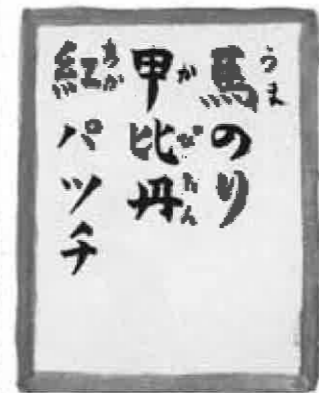 馬のり
甲比丹
紅パツチ